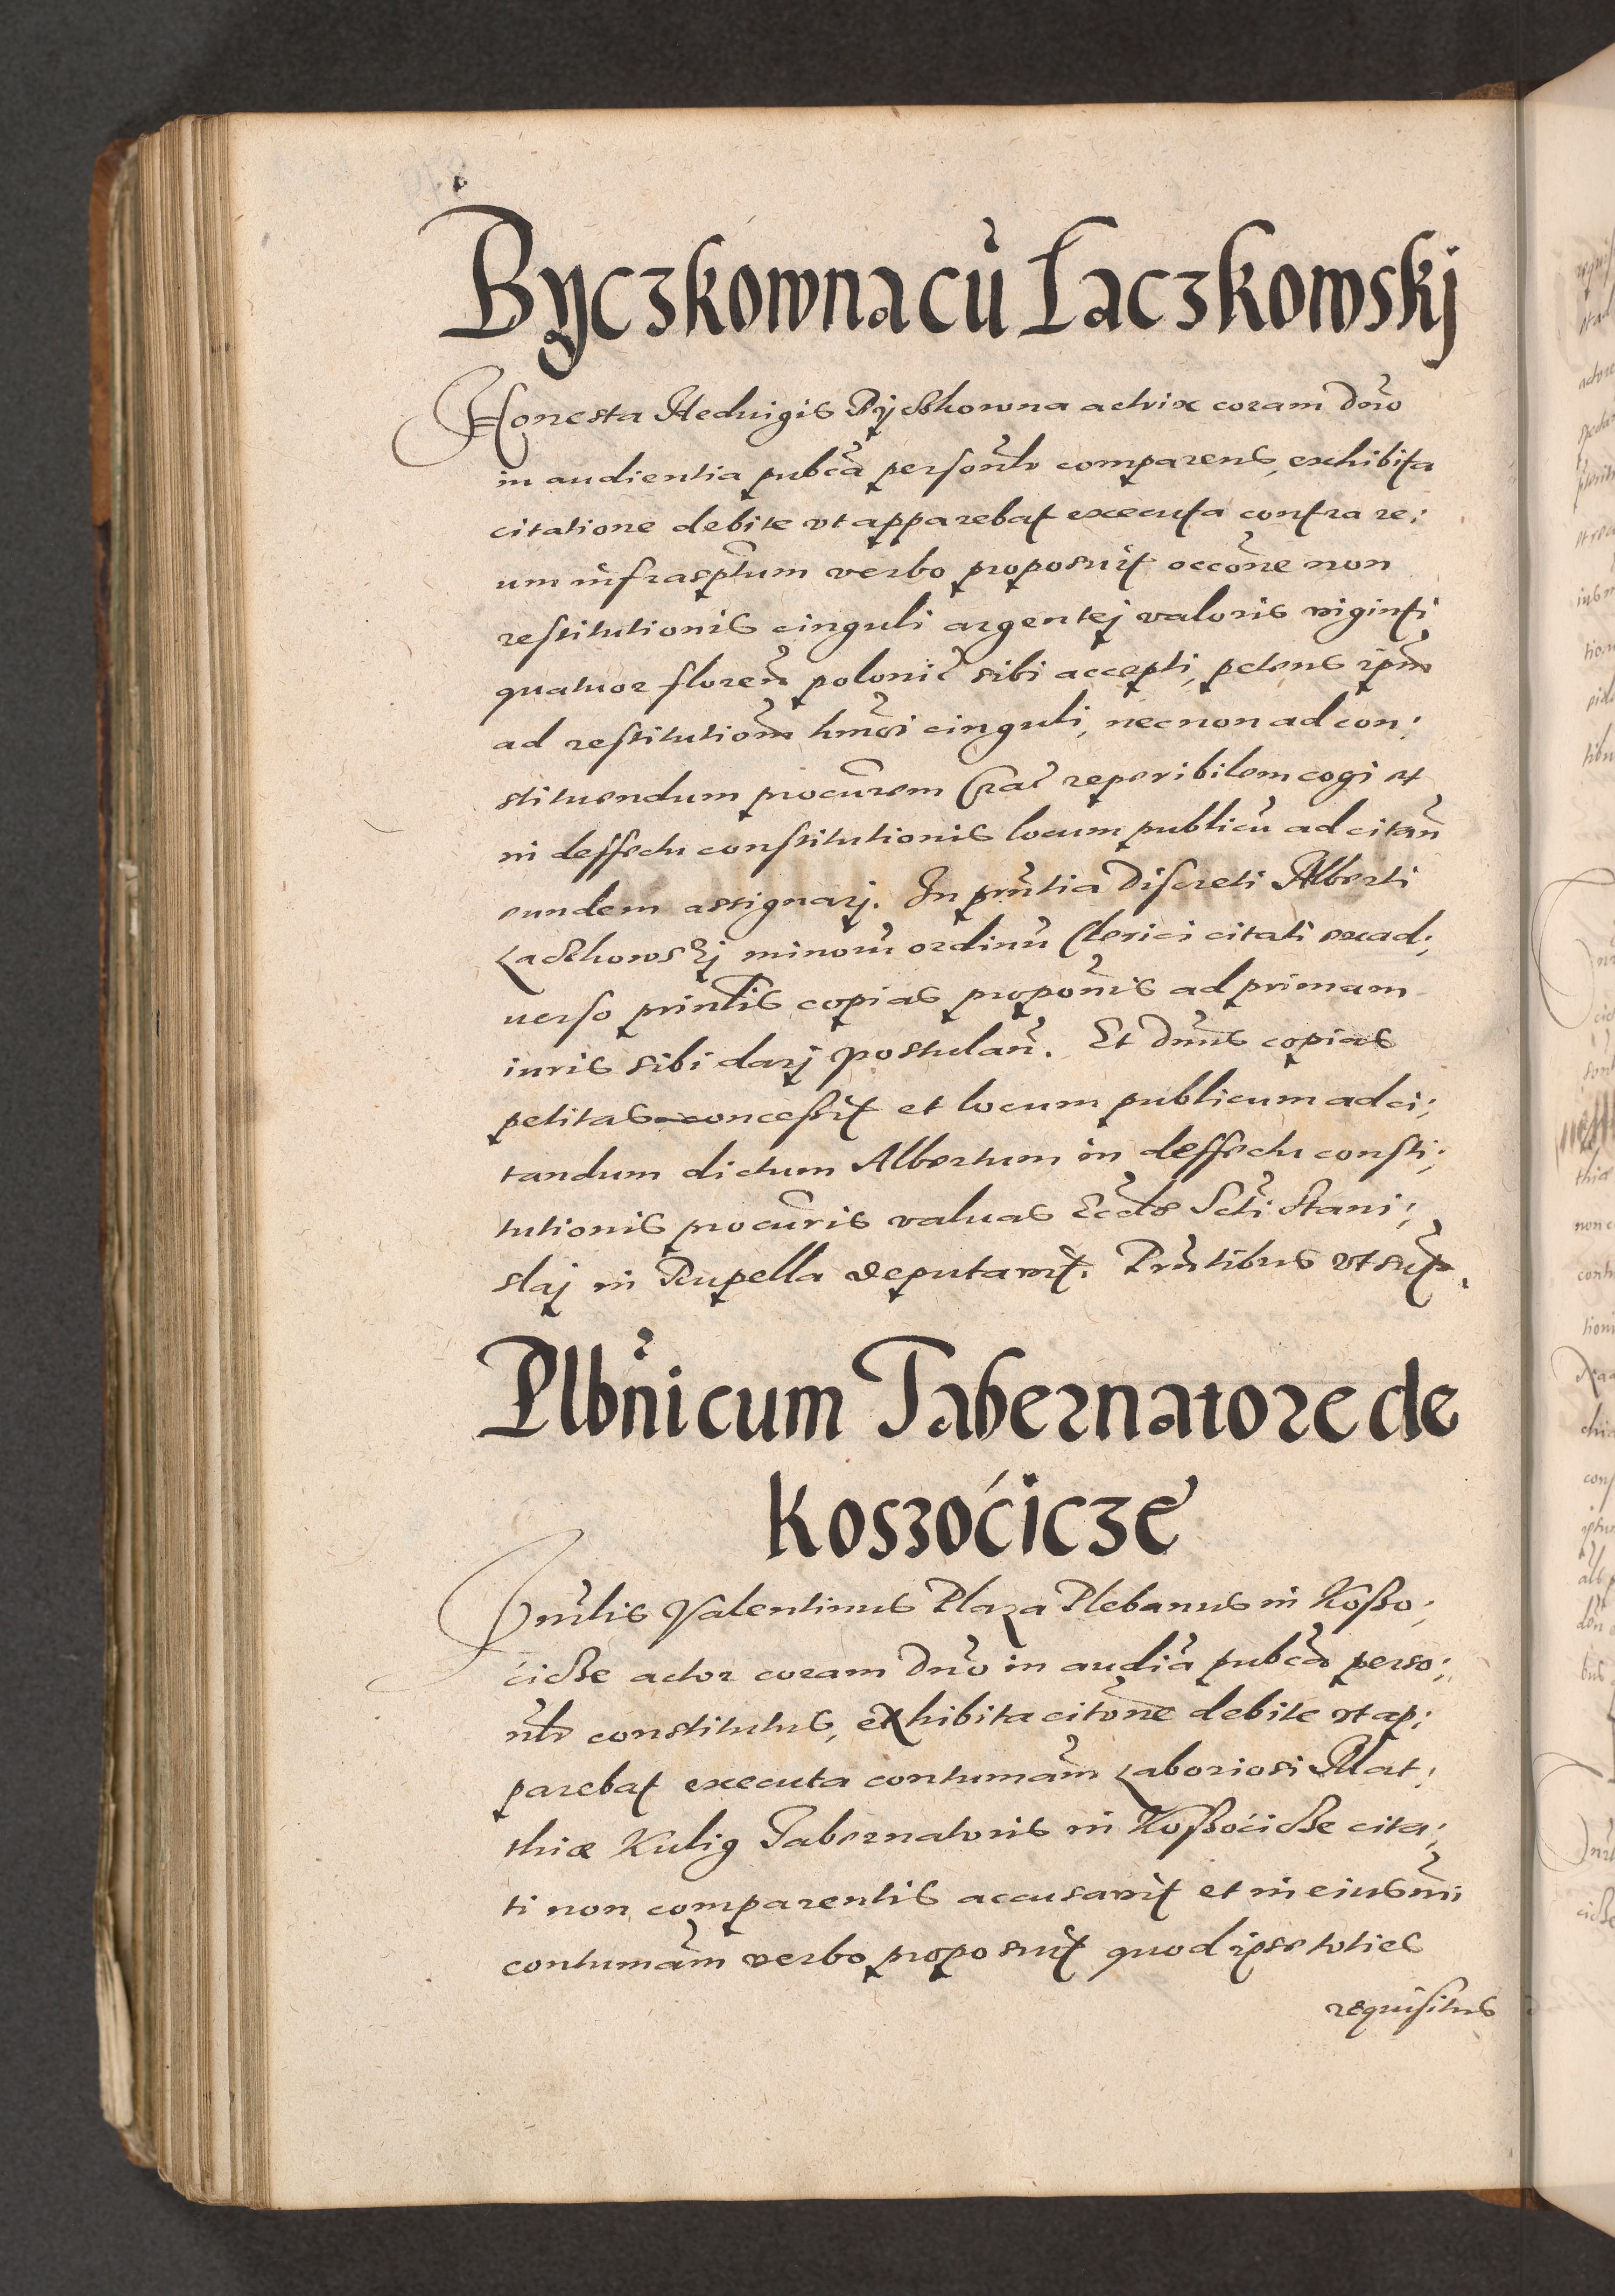 Byczkowna cũ Laczkowskj
Honesta Hedvigis Byczkowna actrix coram Dño
in audientia pubca personlr comparens, exhibita
citatione debite vt apparebat executa contra re;
um infrascptum verbo proposuit occone non
restitutionis cinguli argentej valoris viginti
quatuor floren polonic sibi accepti, petens ipm
ad restitutiom hmoi cinguli, necnon ad con;
stituendum procurem Crac reperibilem cogi et
in deffectu constitutionis locum publicu ad citan
eundem assignarj. In pñtia Discreti Alberti
Laczkowskj minoru ordinu Clerici citati exad;
uerso pñntis copias proponis ad primam
iuris sibi darj postulan. Et Dnus copias
petitas concessit et locum publicum ad ci;
tandum dictum Albertum in deffectu consti;
tutionis procuris valuas Eccłæ Scti Stani;
slaj in Rupella deputavit. Pñtibus vt sup.
Plbni cum Tabernatore de
Koszoćicze
Hñrlis Valentinus Plaza Plebanus in Koszo;
ćicze actor coram Dño in audia pubca perso;
nlr constitutus, exhibita citone debite vt ap;
parebat executa contumam Laboriosi Mat;
thiæ Kulig Tabernatoris in Koszoćicze cita;
ti non comparentis accusavit et in eiusmi
contumam verbo proposuit quod ipse toties
requisitus